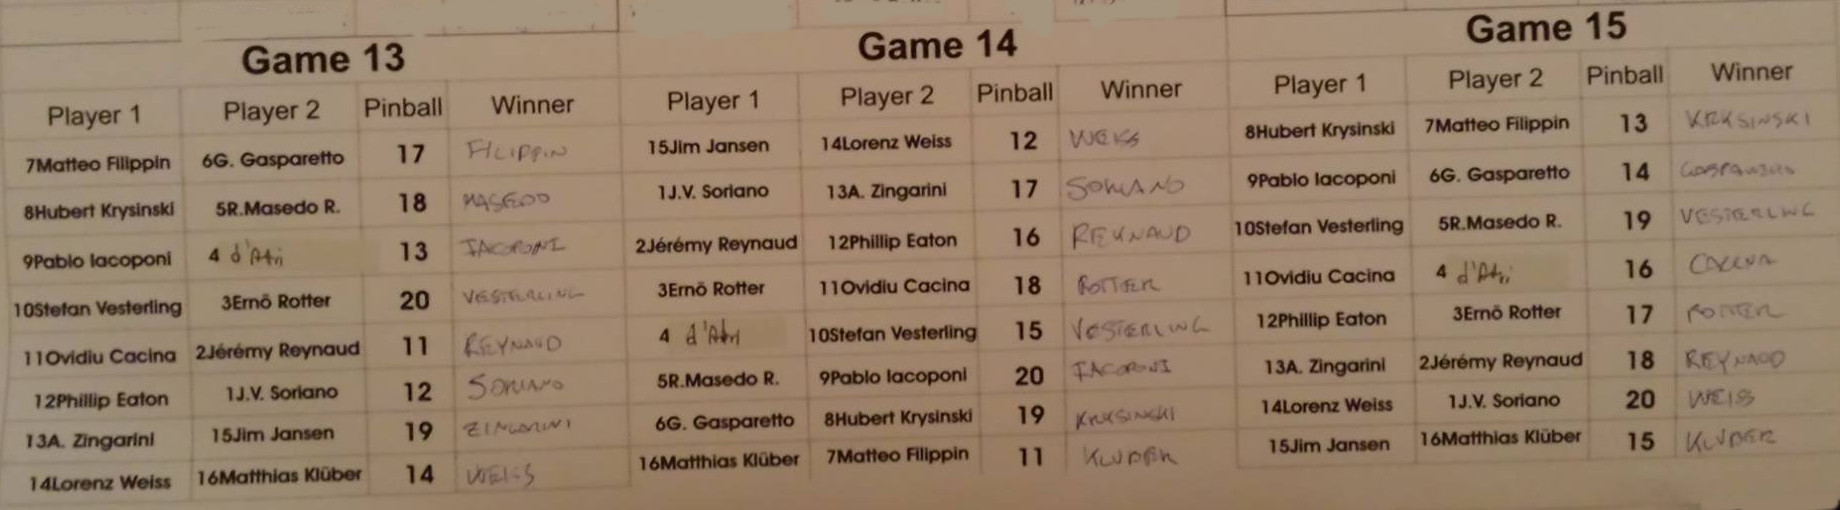 Game 13
Player 1 Player 2 Pinball Winner
7Matteo Filippin 6G. Gasparetto 17 FILIPPIN
8Hubert Krysinski 5R.Masedo R. 18 MASEDO
9Pablo Iacoponi 4 d'Atri 13 IACOPONI
10Stefan Vesterling 3Ernö Rotter 20 VESTERLING
11Ovidiu Cacina 2Jérémy Reynaud 11 REYNAUD
12Phillip Eaton 1J.V. Soriano 12 SORIANO
13A. Zingarini 15Jim Jansen 19 ZINGARINI
14Lorenz Weiss 16Matthias Klüber 14 WEISS
Game 14
Player 1 Player 2 Pinball Winner
15Jim Jansen 14Lorenz Weiss 12 WEISS
1J.V. Soriano 13A. Zingarini 17 SORIANO
2Jérémy Reynaud 12Phillip Eaton 16 REYNAUD
3Ernö Rotter 11Ovidiu Cacina 18 ROTTER
4 d'Atri 10Stefan Vesterling 15 VESTERLING
5R.Masedo R. 9Pablo Iacoponi 20 IACOPONI
6G. Gasparetto 8Hubert Krysinski 19 KRYSINSKI
16Matthias Klüber 7Matteo Filippin 11 KLUBER
Game 15
Player 1 Player 2 Pinball Winner
8Hubert Krysinski 7Matteo Filippin 13 KRYSINSKI
9Pablo Iacoponi 6G. Gasparetto 14
10Stefan Vesterling 5R.Masedo R. 19 VESTERLING
11Ovidiu Cacina 4 d'Atri 16 CACINA
12Phillip Eaton 3Ernö Rotter 17 ROTTER
13A. Zingarini 2Jérémy Reynaud 18 REYNAUD
14Lorenz Weiss 1J.V. Soriano 20 WEISS
15Jim Jansen 16Matthias Klüber 15 KLUBER